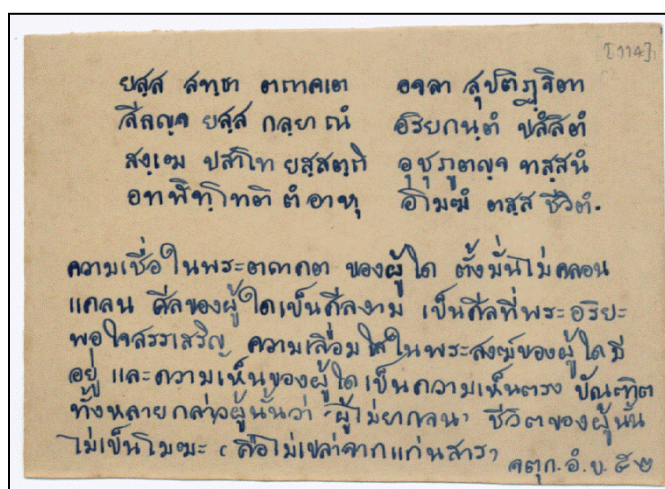 [114]
ยสฺส สทฺธา ตถาคเต อจลา สุปติฏฺฐิตา
สีลญฺจ ยสฺส กลฺยาณํ อริยกนฺตํ ปสํสิตํ
สงฺเฆ ปสาโท ยสฺสตฺถิ อุชุภูตญฺจ ทสฺสนํ
อทฬิทฺโทติ ตํ อาหุ อโมฆํ ตสฺส ชีวิตํ.
ความเชื่อในพระตถาคต ของผู้ใด ตั้งมั่นไม่คลอน
แคลน ศีลของผู้ใดเป็นศีลงาม เป็นศีลที่พระอริยะ
พอใจสรรเสริญ ความเลื่อมใสในพระสงฆ์ของผู้ใดมี
อยู่ และความเห็นของผู้ใดเป็นความเห็นตรง บัณฑิต
ทั้งหลายกล่าวผู้นั้นว่า 'ผู้ไม่ยากจน' ชีวิตของผู้นั้น
ไม่เป็นโมฆะ (คือไม่เปล่าจากแก่นสาร)
จตุก. อํ. ข. ๕๒